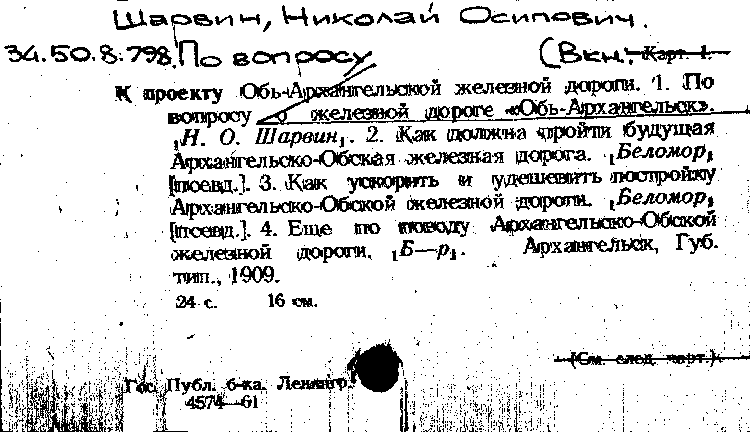 Шарвин, Николай Осипович.
34.50.8.798. По вопросу (Вкн: Карт. 1.
К проекту Обь-Архангельской железной дороги. 1. По
вопросу о железной дороге «Обь-Архангельск».
[Н. О. Шарвин]. 2. Как должна пройти будущая
Архангельско-Обская железная дорога. [Беломор]
[псевд.]. 3. Как ускорить и удешевить постройку
Архангельско-Обской железной дороги. [Беломор]
[псевд.]. 4. Еще по поводу Архангельско-Обской
железной дороги. [Б—р]. Архангельск, Губ.
тип., 1909.
24 с. 16 см.
(См. след. карт.)
Гос. Публ. б-ка. Ленингр.
4574—61